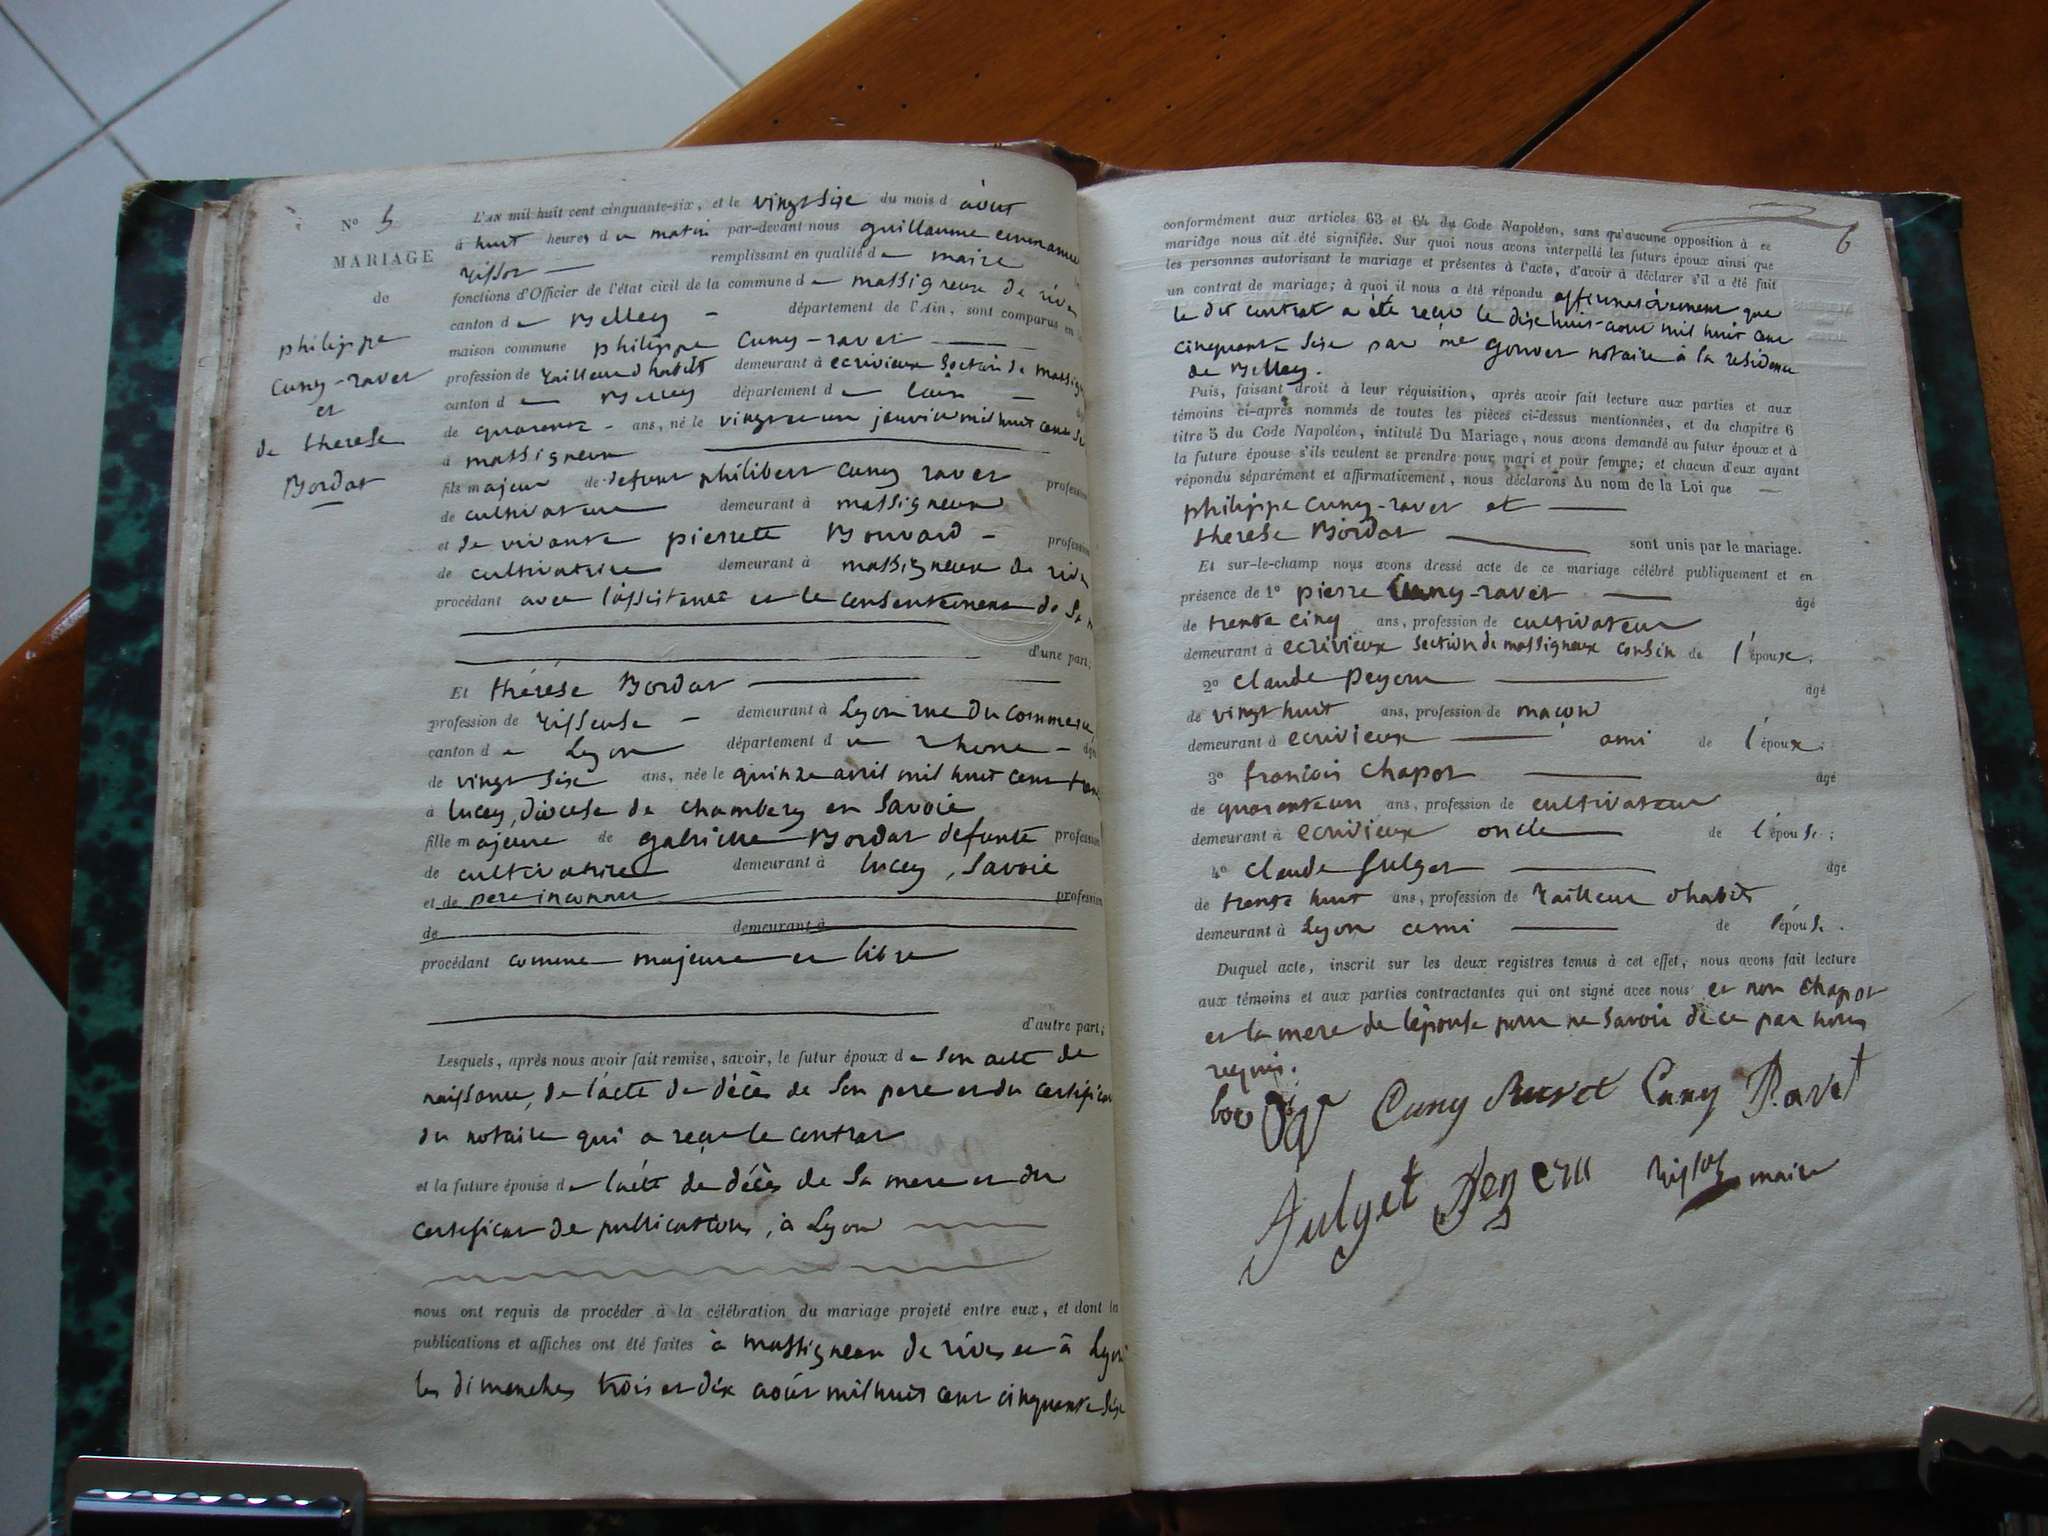 N° 5
MARIAGE
de
philippe
Cuny-ravet
et
de therese
Bordat
L'AN mil huit cent cinquante-six, et le vingt Six du mois d août
à huit heures d u matin par-devant nous guillaume
remplissant en qualité de maire
fonctions d'Officier de l'état civil de la commune d e massigneux de rives
canton d e Belley département de l'Ain, sont comparus en
maison commune philippe Cuny-ravet
profession de tailleur d'habits demeurant à ecrivieux Section de
canton d e Belley département d e lain
de quarante ans, né le vingt et un janvier mil huit cent
à massigneux
fils majeur de defunt philibert Cuny ravet profession
de cultivateur demeurant à massigneux
et de vivante pierrette Bouvard profession
de cultivatrice demeurant à massigneux de rives
procédant avec l'assistance et le consentement de Sa
d'une part,
Et thérèse Bordat
profession de tisseuse demeurant à Lyon rue du commerce
canton d e Lyon département d u rhone
de vingt Six ans, née le quinze avril mil huit cent
à lucey, diocese de chambery en Savoie
fille majeure de gabrielle Bordat defunte profession
de cultivatrice demeurant à lucey, Savoie
et de pere inconnu profession
de demeurant à
procédant comme majeure et libre
d'autre part;
Lesquels, après nous avoir fait remise, savoir, le futur époux d e son acte de
naissance, de l'acte de décès de Son pere et du certificat
du notaire qui a reçu le contrat
et la future épouse d e l'acte de décès de Sa mere et du
certificat de publications, à Lyon
nous ont requis de procéder à la célébration du mariage projeté entre eux, et dont la
publications et affiches ont été faites à massigneux de rives et à Lyon
les dimanches trois et dix août mil huit cent cinquante Six
6
conformément aux articles 63 et 64 du Code Napoléon, sans qu'aucune opposition à ce
mariage nous ait été signifiée. Sur quoi nous avons interpellé les futurs époux ainsi que
les personnes autorisant le mariage et présentes à l'acte, d'avoir à déclarer s'il a été fait
un contrat de mariage; à quoi il nous a été répondu affirmativement que
le dit contrat a été reçu le dix huit aout mil huit cent
cinquante Six par me gouvet notaire à la résidence
de Belley.
Puis, faisant droit à leur réquisition, après avoir fait lecture aux parties et aux
témoins ci-après nommés de toutes les pièces ci-dessus mentionnées, et du chapitre 6
titre 5 du Code Napoléon, intitulé Du Mariage, nous avons demandé au futur époux et à
la future épouse s'ils veulent se prendre pour mari et pour femme; et chacun d'eux ayant
répondu séparément et affirmativement, nous déclarons Au nom de la Loi que
philippe Cuny-ravet et
therese Bordat sont unis par le mariage.
Et sur-le-champ nous avons dressé acte de ce mariage célébré publiquement et en
présence de 1° pierre Cuny-ravet âgé
de trente cinq ans, profession de cultivateur
demeurant à ecrivieux section de massigneux cousin de l'époux,
2° Claude peyon âgé
de vingt huit ans, profession de maçon
demeurant à ecrivieux ami de l'époux;
3° francois Chapot âgé
de quarante un ans, profession de cultivateur
demeurant à ecrivieux oncle de l'épouse;
4° Claude fulget âgé
de trente huit ans, profession de tailleur d'habits
demeurant à Lyon ami de l'épouse.
Duquel acte, inscrit sur les deux registres tenus à cet effet, nous avons fait lecture
aux témoins et aux parties contractantes qui ont signé avec nous et non Chapot
et la mere de l'épouse pour ne Savoir de ce par nous
requis.
Cuny Ravet Cuny Ravet
fulget maire